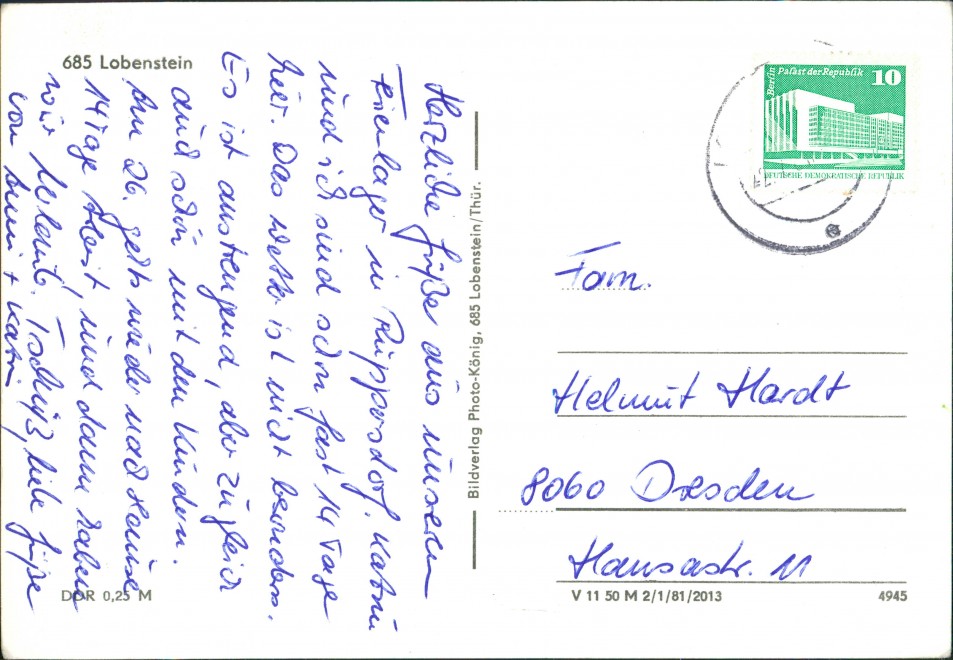 685 Lobenstein
Herzliche Grüße aus unserem
Ferienlager in Ruppersdorf. Katrin
und ich sind schon fast 14 Tage
hier. Das Wetter ist nicht besonders.
Es ist anstrengend, aber zugleich
auch schön mit den Kindern.
Am 26. gehts wieder nach Hause
14 Tage Rest, und dann haben
wir Urlaub. Tschüß, liebe Grüße
von + Katrin
DDR 0,25 M
Bildverlag Photo-König, 685 Lobenstein/Thür.
Berlin Palast der Republik 10
DEUTSCHE DEMOKRATISCHE REPUBLIK
Fam.
Helmut Hardt
8060 Dresden
Hansastr. 11
V 11 50 M 2/1/81/2013
4945